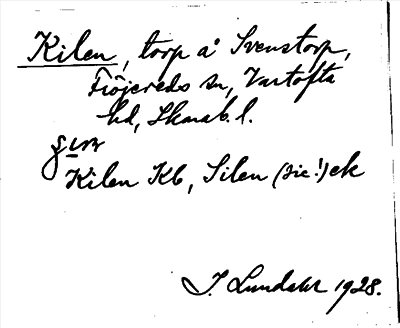 Kilen, torp å Svenstorp,
Fröjereds sn, Vartofta
hd, Skarab. l.
Kilen Kb, Silen (sic!) ek
J. Lundahl 1928.